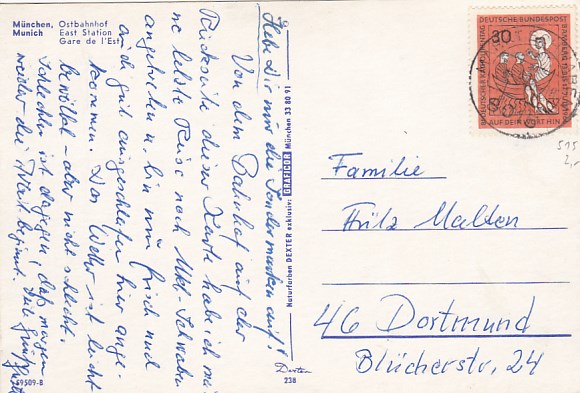 München, Ostbahnhof
Munich East Station
Gare de l'Est
Hebe Dir mir die Sondermarken auf!
Von dem Bahnhof auf der
Rückseite dieser Karte habe ich
ne letzte Reise nach Mkt-Schwaben
angetreten u. bin nun frisch und
auch gut ausgeschlafen hier ange-
kommen. Das Wetter ist leicht
bewölkt - aber nicht schlecht.
Schlechter ist dagegen, daß morgen
wieder die Arbeit beginnt.
69509-8
Naturfarben DEXTER exklusiv: GRAFICOR München 33 80 91
Dexter
238
30
DEUTSCHE BUNDESPOST
81. DEUTSCHER KATHOLIKENTAG
BAMBERG 13.BIS 17.JULI 1966
AUF DEIN WORT HIN
515
2,-
Familie
Fritz Malten
46 Dortmund
Blücherstr. 24